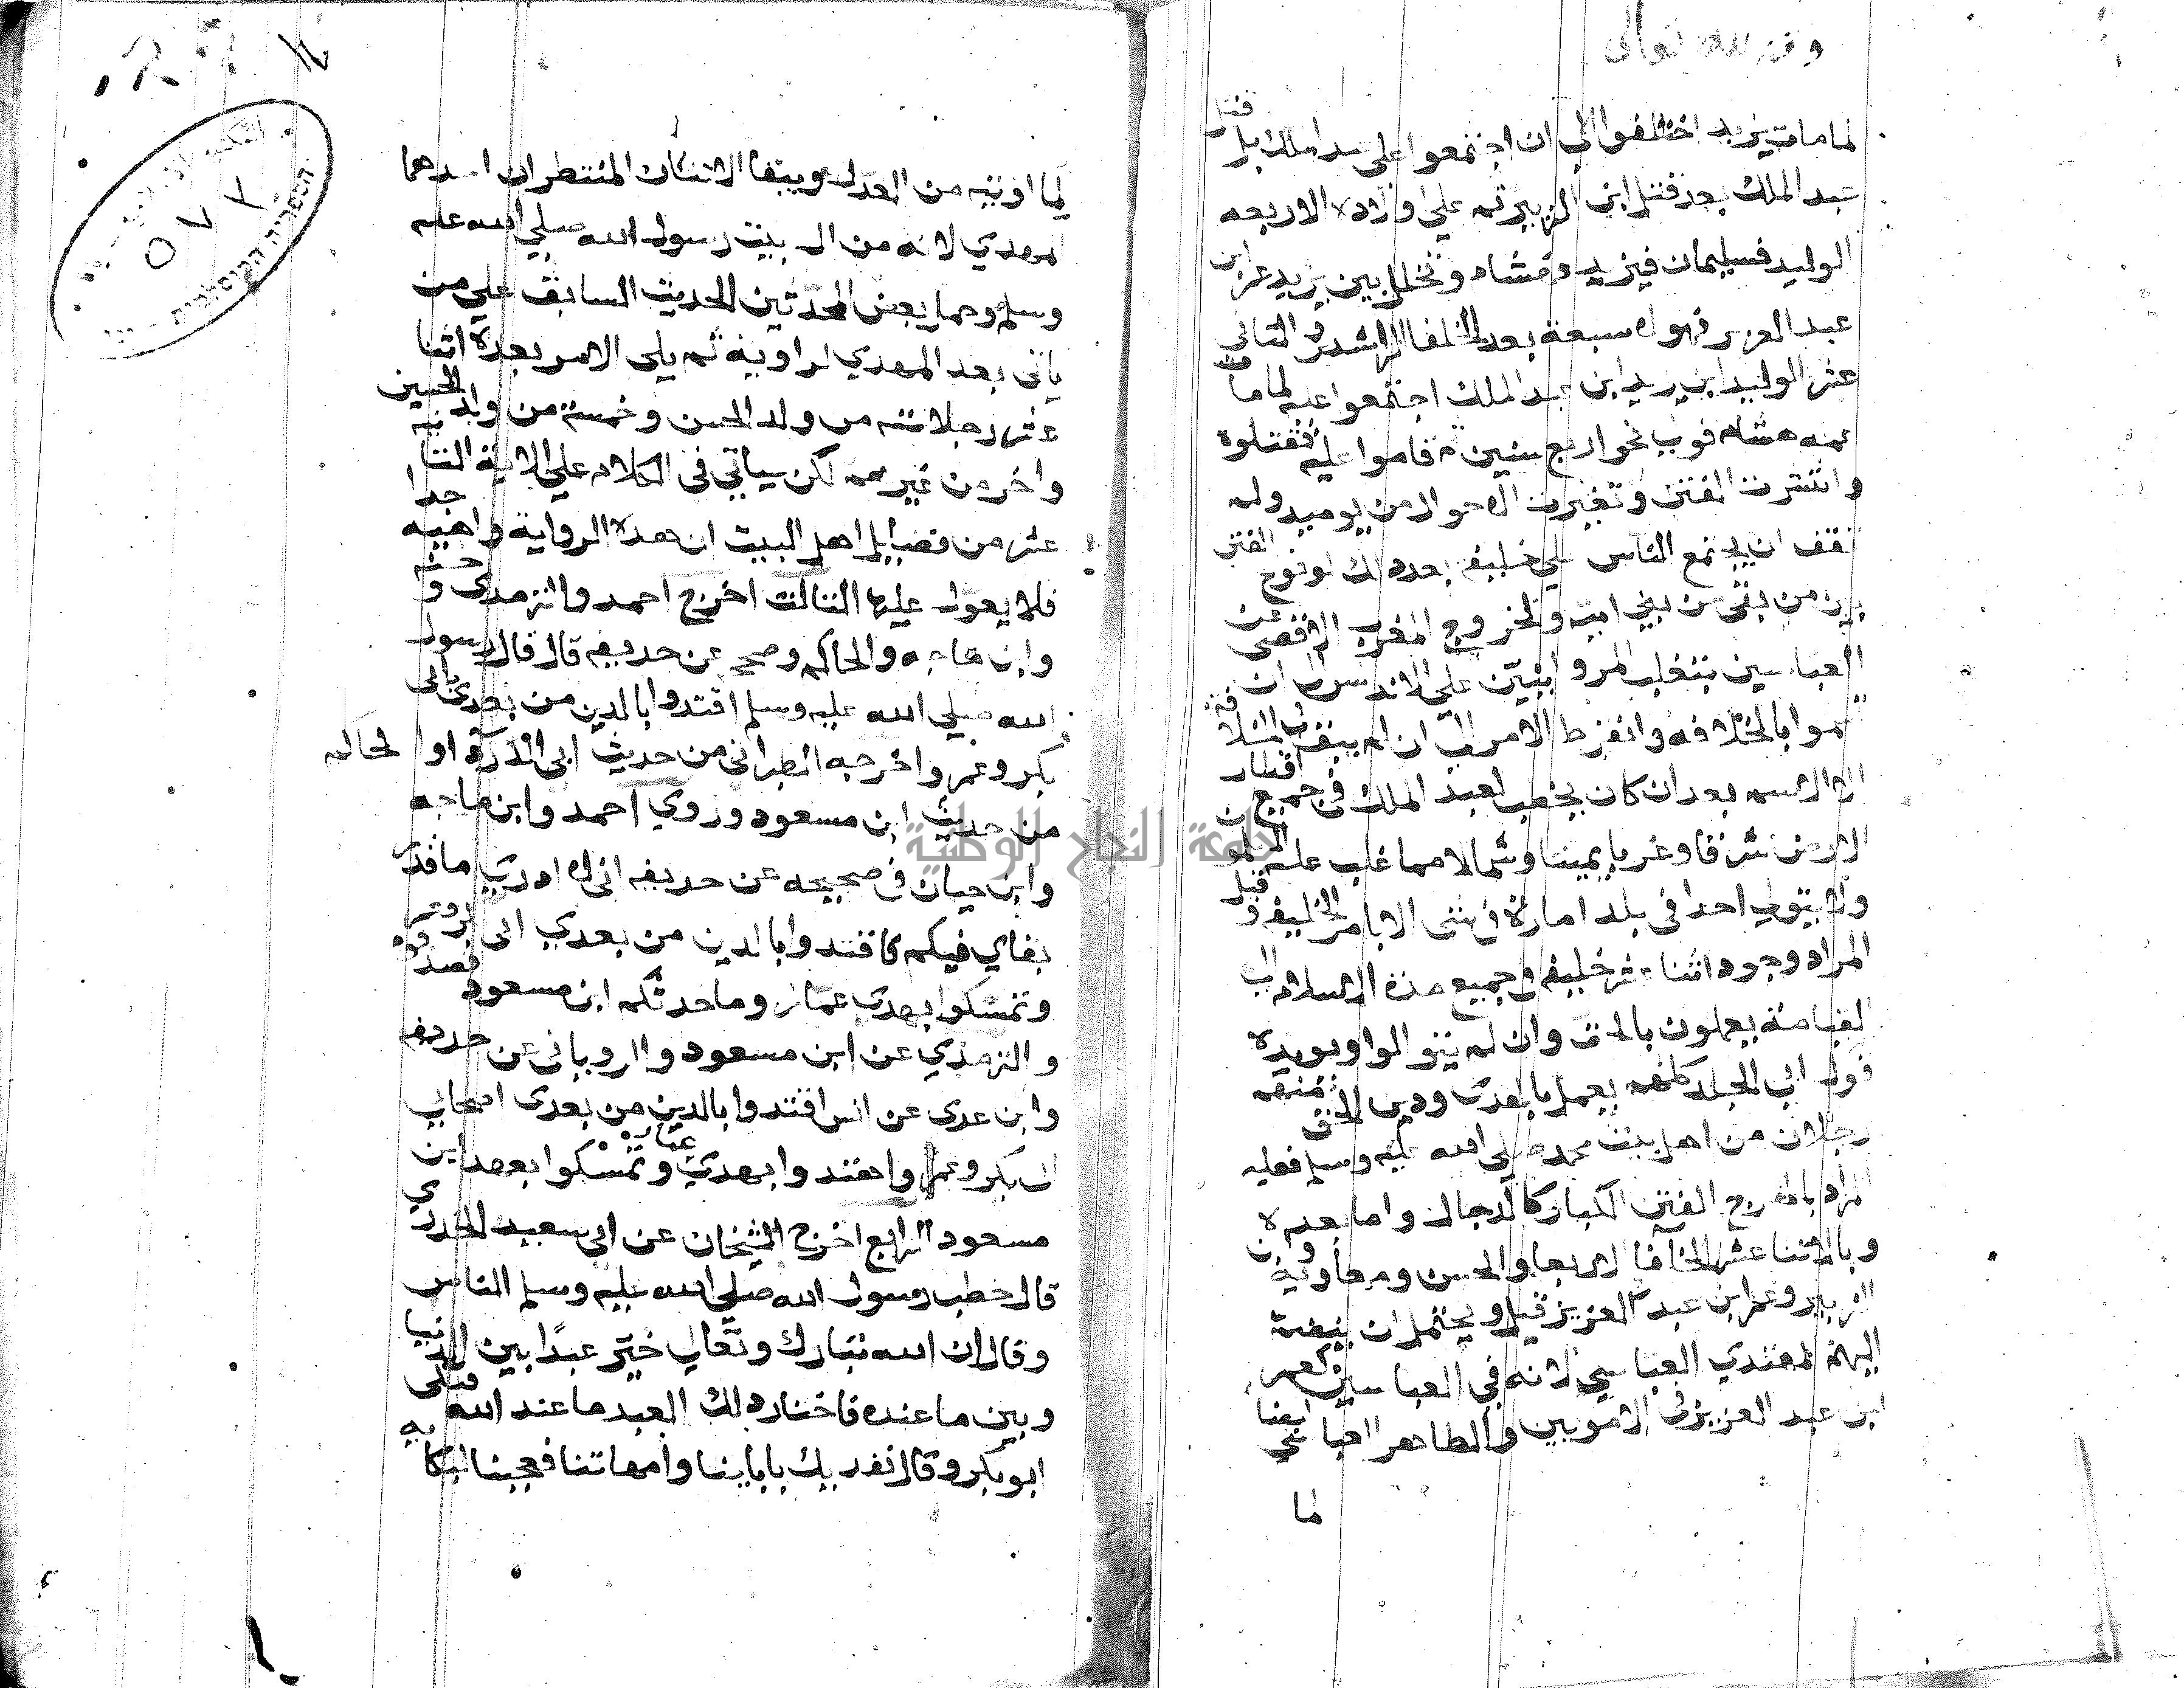 وقف لله تعالى
لما مات يزيد اختلفوا الى ان اجتمعوا على عبد الملك بل قتل
عبد الملك بعد قتل ابن الزبير ثم على اولاده الاربعه
الوليد فسليمان فيزيد فهشام وتخلل بين يزيد عمر ابن
عبد العزيز فهولا سبعة بعد الخلفا الراشدين والثاني
عشر الوليد ابن يزيد ابن عبد الملك اجتمعوا عليه لما مات
عمه هشام فولي نحو اربع سنين ثم قاموا عليه فقتلوه
وانتشرت الفتن وتغيرت الاحوال من يوميد ولم
يتفق ان يجتمع الناس على خليفه بعد ذلك لوقوع الفتن
بين من بقي من بني اميه ولخروج المغرب الاقصى عن
العباسين بتغلب المروانيين على الاندلس الى ان
تسموا بالخلافه وانفرط الامر الى ان لم يبق من الخلافه
الا الاسم بعد ان كان يخطب لعبد الملك في جميع اقطار
الارض شرقا وغربا يمينا وشمالا مما غلب عليه المسلمون
ولا يتولى احد في بلد امارة في شي الا بامر الخليفه وقيل
المراد وجود اثنا عشر خليفه في جميع مدة الاسلام الى
القيامة يعملون بالحق وان لم يتوالوا ويويده
قول ابي الجلد كلهم يعمل بالهدى ودين الحق منهم
رجلان من اهل بيت محمد صلى الله عليه وسلم فعليه
المراد بالهرج الفتن الكبار كالدجال وما بعده
وبالاثنا عشر الخلفا الاربعا والحسن ومعاوية وابن
الزبير وعمر ابن عبد العزيز قيل ويحتمل ان يضم
اليهم المهتدي العباسي لانه في العباسيين كعمر
ابن عبد العزيز في الامويين والطاهر العباسي ايضا
لما
لما اوتيه من العدل ويبقا الاثنان المنتظران احدهما
المهدي لانه من ال بيت رسول الله صلي الله عليه
وسلم وحمل بعض المحدثين الحديث السابق علي من
ياتي بعد المهدي لرواية ثم يلي الامر بعده اثنا
عشر رجلا سته من ولد الحسن وخمسة من ولد الحسين
واخر من غيرهم لكن سياتي في الكلام علي الاية الثانية
عشر من فضايل اهل البيت ان هذه الرواية واهيه جدا
فلا يعول عليها الثالث اخرج احمد والترمذي وحسنه
وابن ماجه والحاكم وصححه عن حذيفه قال قال رسول
الله صلي الله عليه وسلم اقتدوا بالدين من بعدي ابي
بكر وعمر واخرجه الطبراني من حديث ابي الدردا والحاكم
من حديث ابن مسعود وروي احمد وابن ماجه
وابن حبان في صحيحه عن حديفه اني لا ادري ما قدر
بقاي فيكم فاقتدوا بالدين من بعدي ابي بكر وعمر
وتمسكوا بهدي عمار وما حدثكم ابن مسعود فصدقوه
والترمذي عن ابن مسعود والروياني عن حديفه
وابن عدى عن انس اقتدوا بالدين من بعدى اصحابي
ابى بكر وعمر واهتدوا بهدي عمار وتمسكوا بعهد ابن
مسعود الرابع اخرج الشيخان عن ابي سعيد الخدري
قال خطب رسول الله صلي الله عليه وسلم الناس
وقال ان الله تبارك وتعالي خيّر عبدًا بين الدنيا
وبين ما عنده فاختار ذلك العبد ما عند الله فبكى
ابو بكر وقال نفديك باباينا وامهاتنا فعجبنا لبكايه
٥٧٢
جامعة النجاح الوطنية